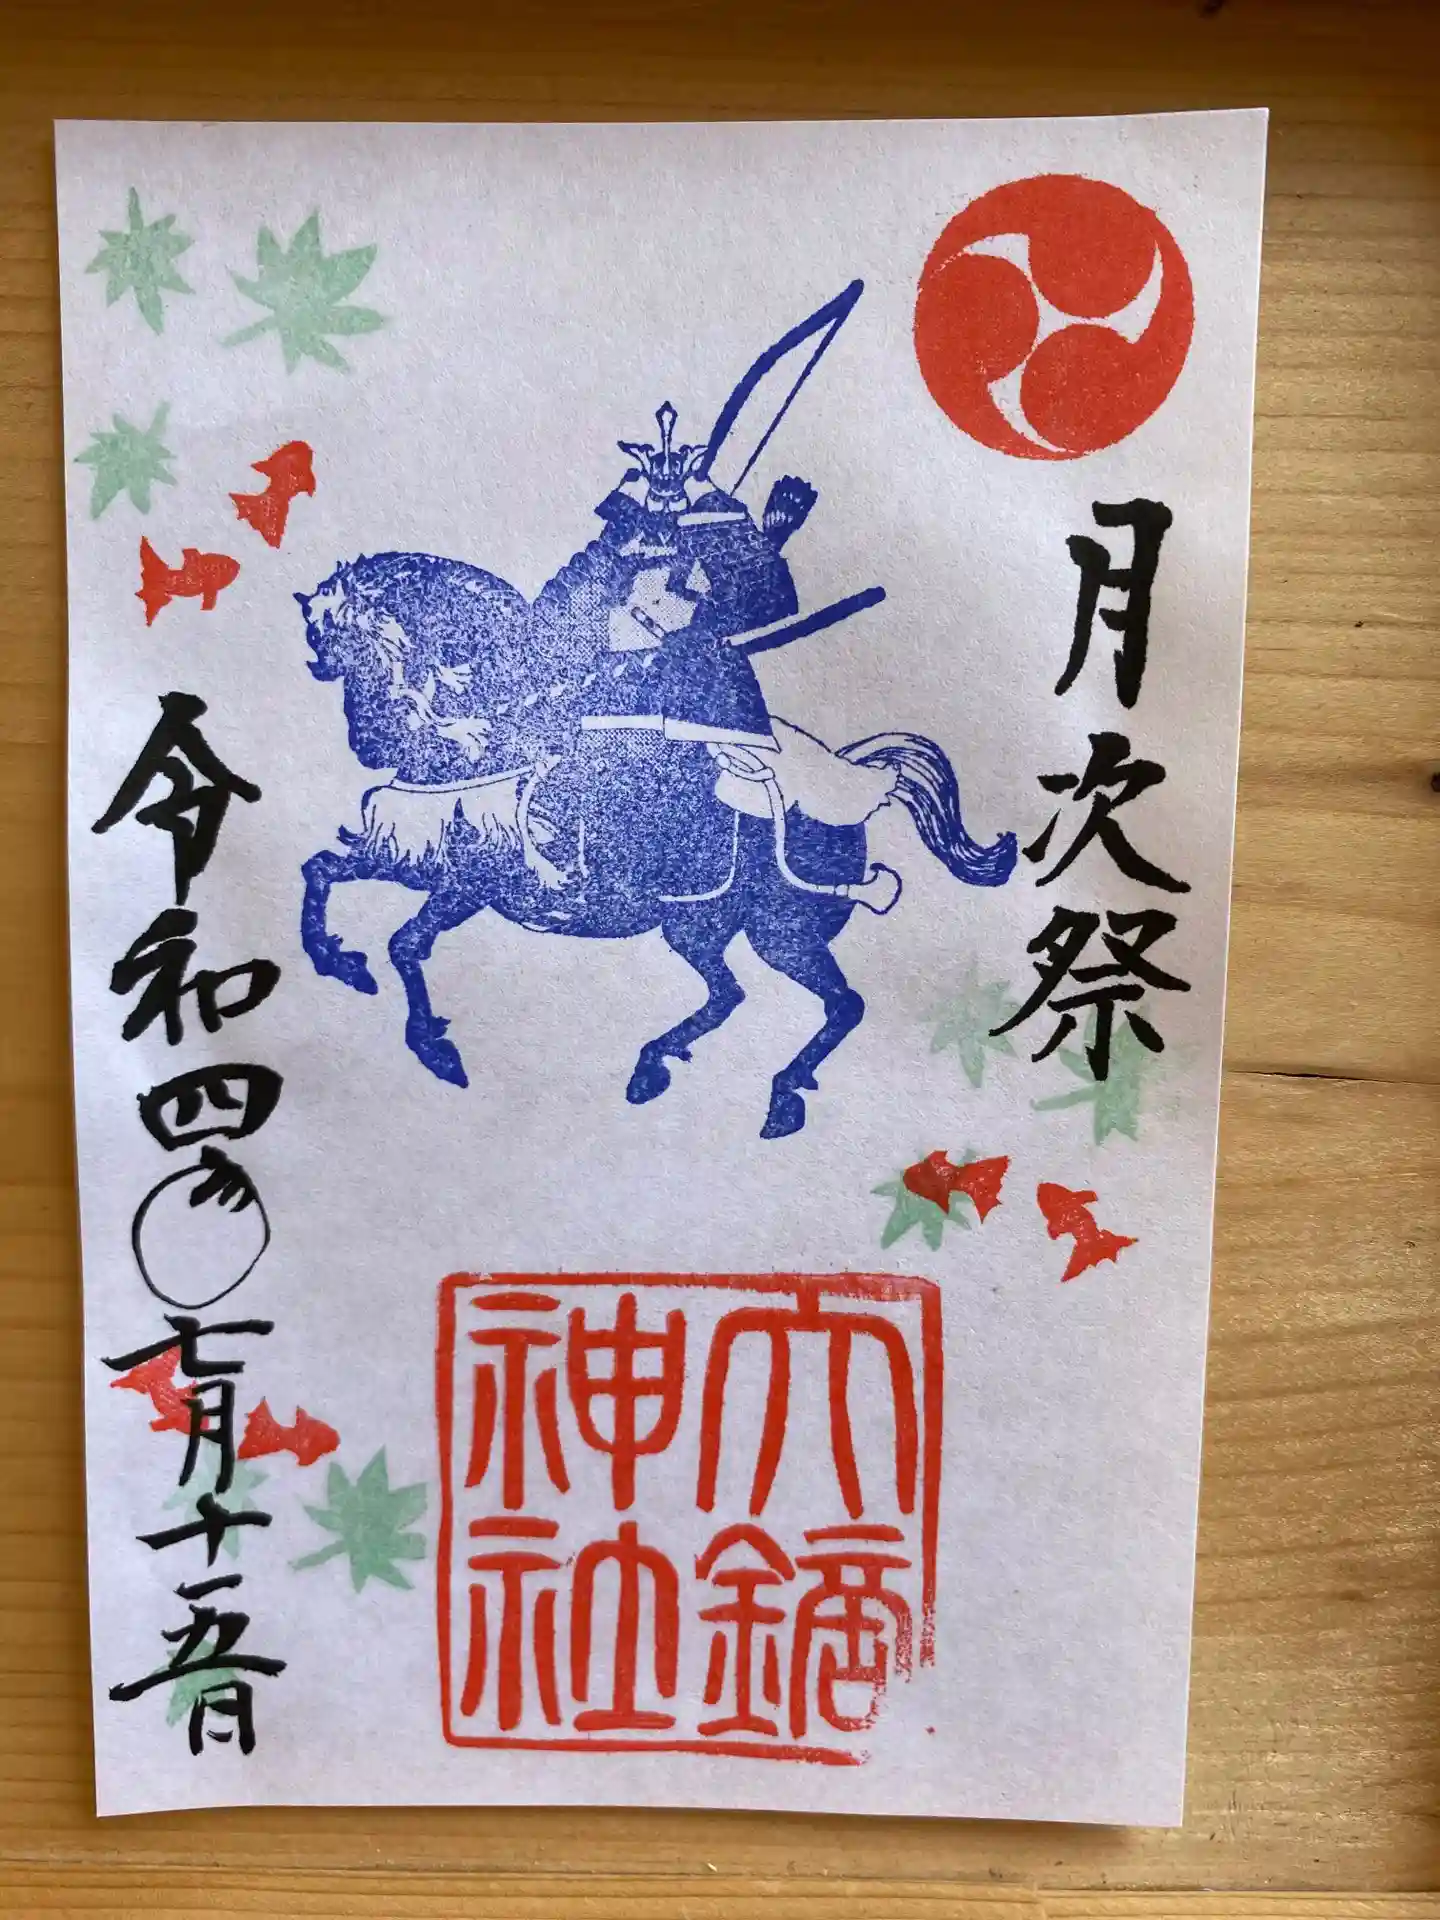 月次祭
大鏑
神社
令和四年七月十五日